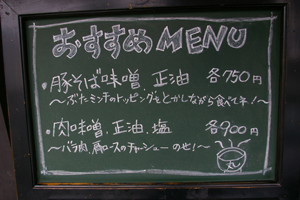 おすすめ MENU
・豚そば味噌 正油 各750円
〜ぶたミンチのトッピングをとかしながら食べて下さい!〜
・肉味噌、正油、塩 各900円
〜バラ肉、肩ロースのチャーシューのせ!〜